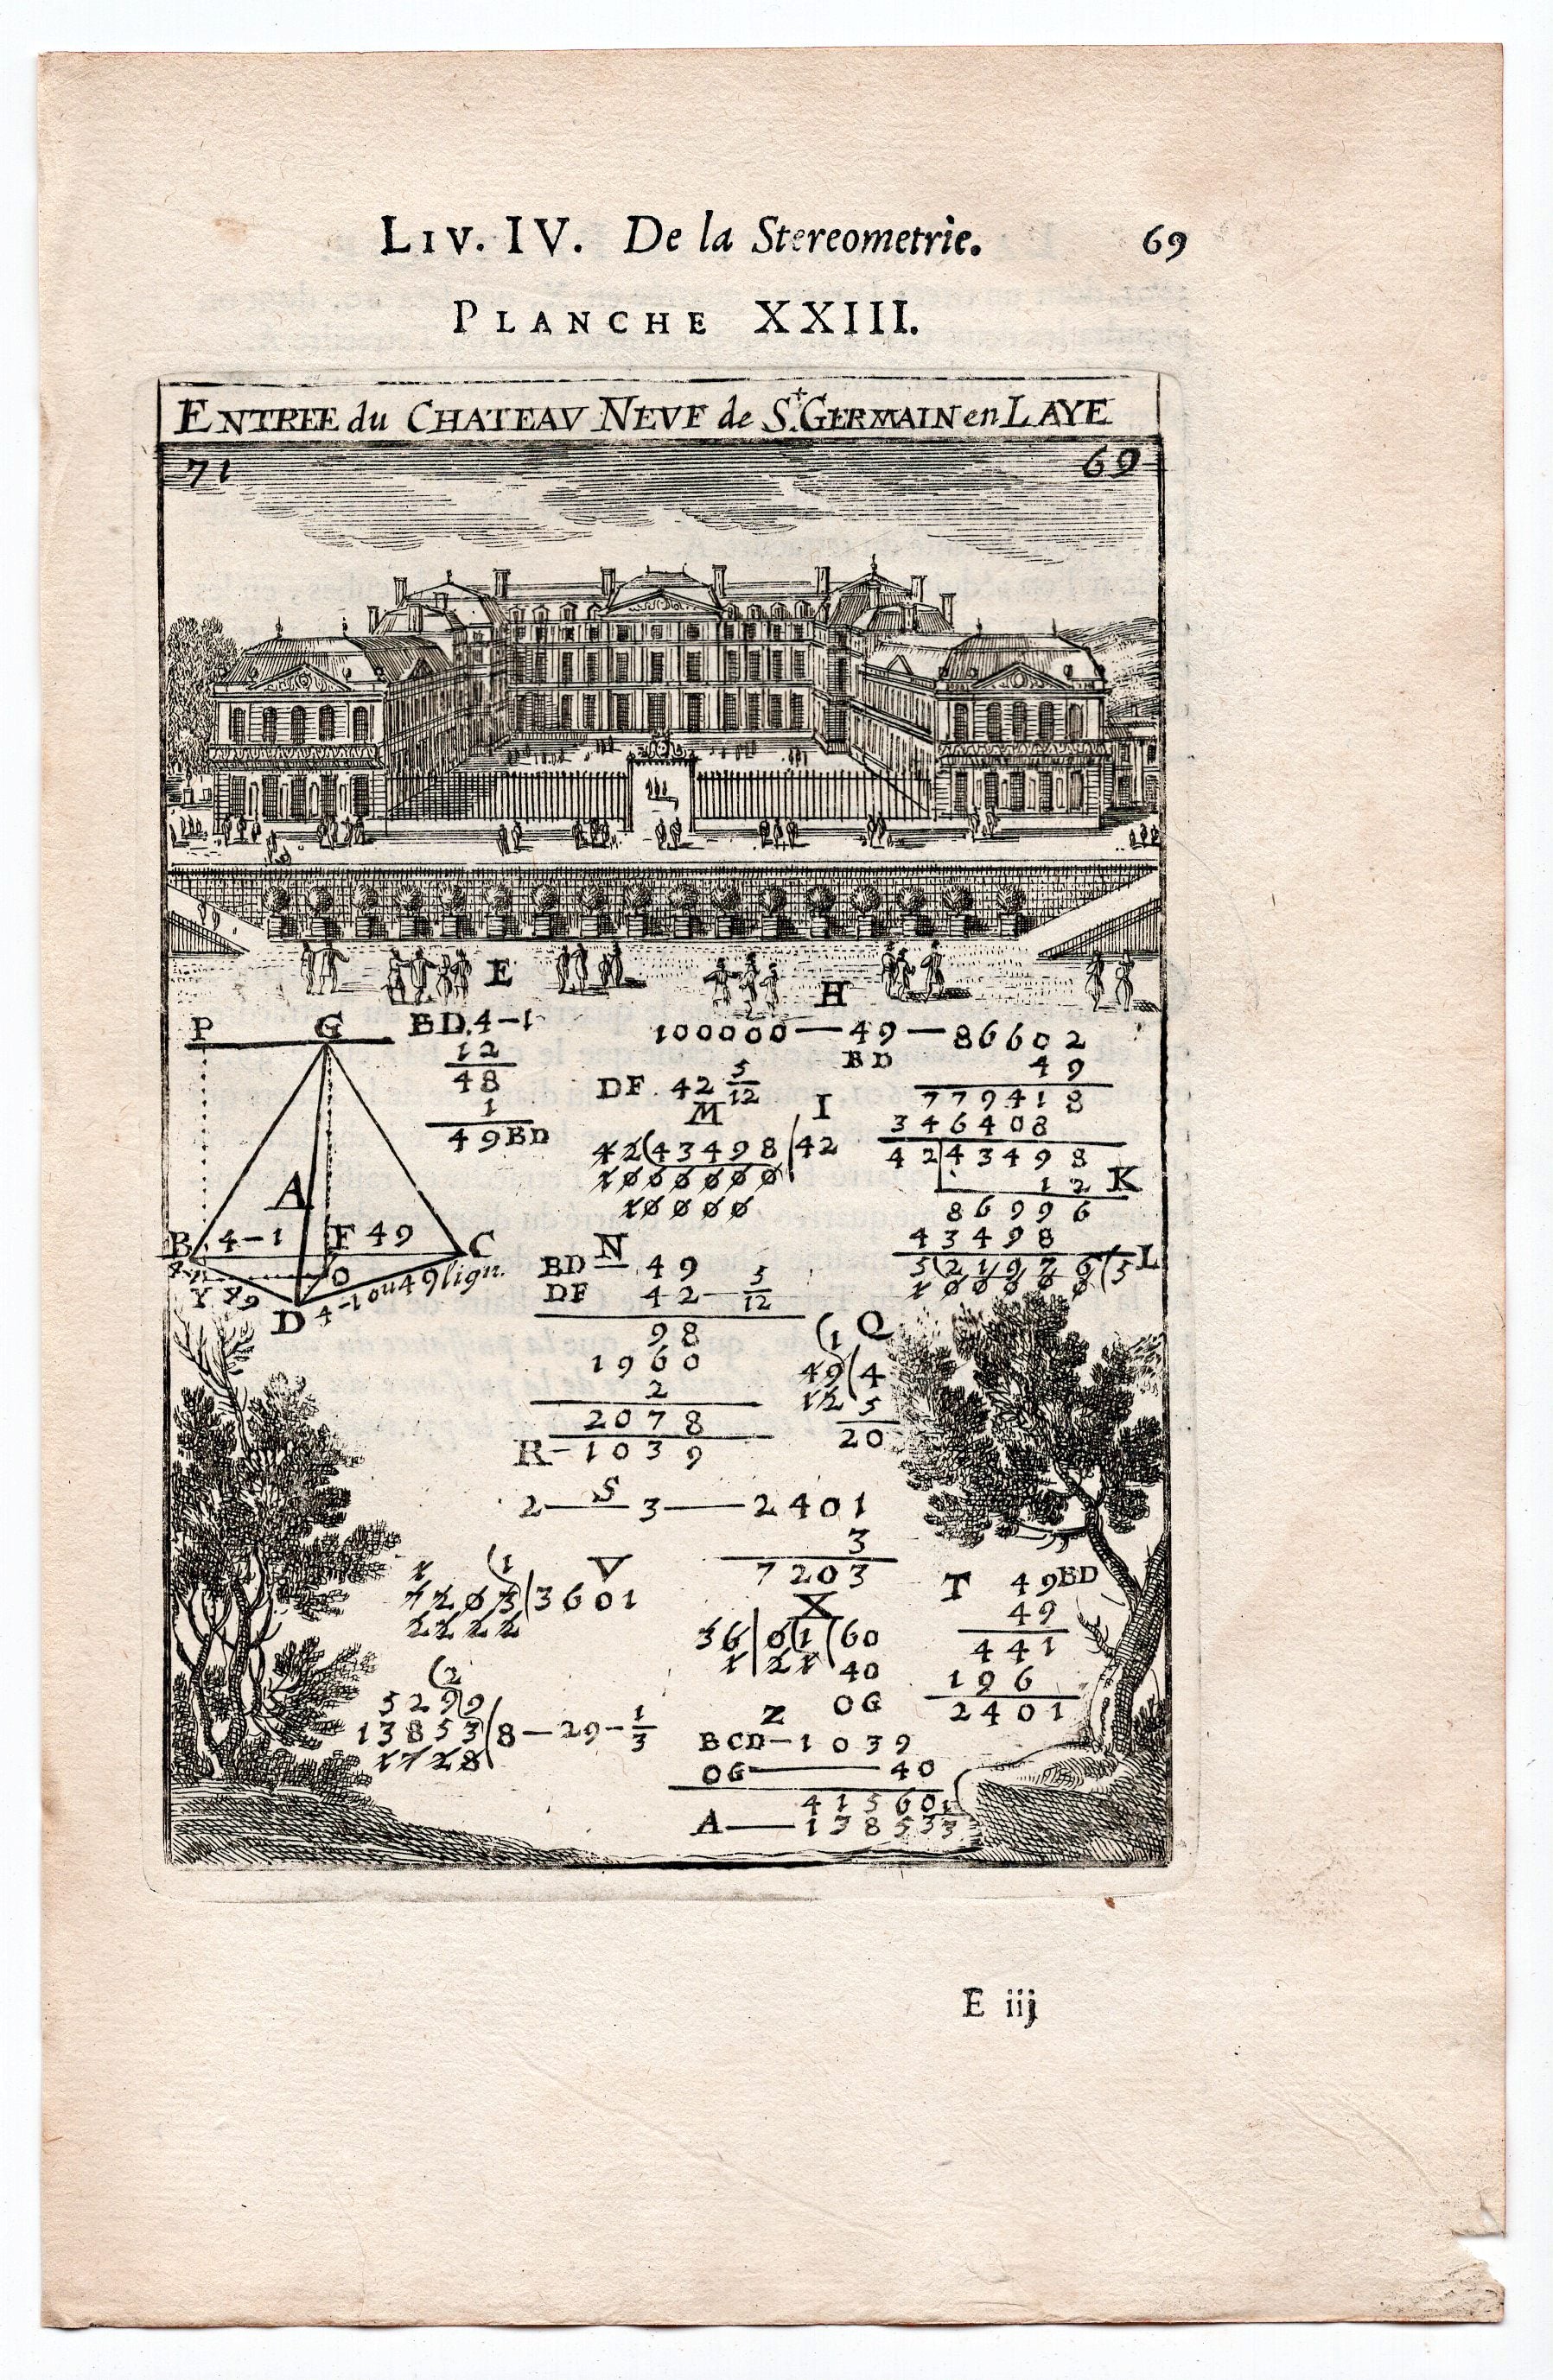 LIV. IV. De la Stereometrie. 69
PLANCHE XXIII.
ENTREE du CHATEAV NEVF de St. GERMAIN en LAYE
71 69
E
H
P G BD. 4-1
12
48
1
49 BD
100000 — 49 — 86602
BD 49
DF. 42 5/12
779418
M I
346408
42(43498|42
1000000
10000
42|43498
12 K
86996
43498
5(21976(5 L
10000 0
A
B 4-1 F 49 C
O
Y 49
D 4-1 ou 49 lign.
N
BD 49
DF 42 — 5/12
98
1960
2
2078
R-1039
(1 Q
49(4
12 5
20
2 — S — 3 — 2401
3
7203
1 (1 V
7203(3601
2222
X
36|0(1(60
1|21 40
OG
T 49 BD
49
441
196
2401
(2
5299
13853(8-29-1/3
1728
Z
BCD-1039
OG — 40
41560
A — 13853 1/3
E iij